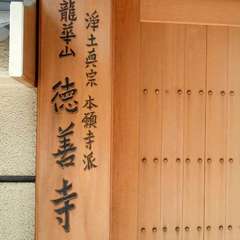 浄土真宗 本願寺派
龍華山
徳善寺